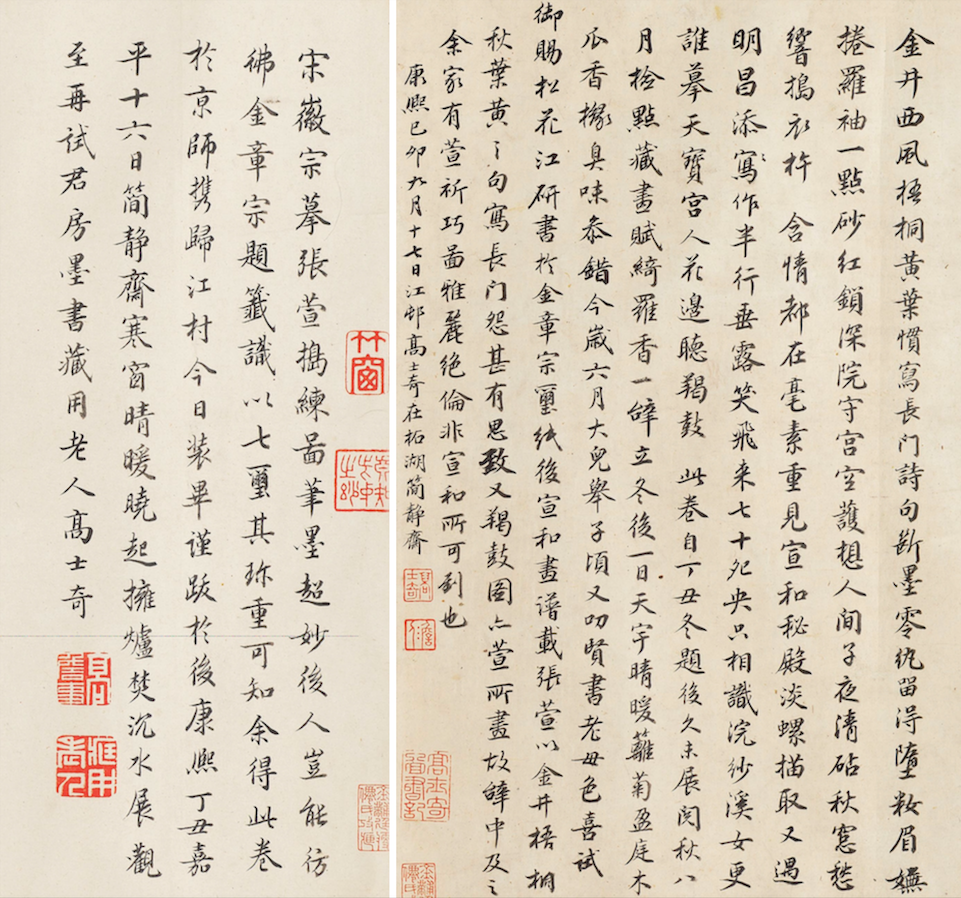 金井西風梧桐黃葉慣寫長門詩句斷墨零紈留得墮粧眉嫵
捲羅袖一點砂紅鎖深院守宮空護想人間子夜清砧秋窓愁
響搗衣杵 含情都在毫素重見宣和秘殿淡螺描取又過
明昌添寫作半行垂露笑飛来七十夗央只相識浣紗溪女更
誰摹天寶宮人花邊聽羯鼓 此卷自丁丑冬題後久未展閱秋八
月檢點藏畫賦綺羅香一辤立冬後一日天宇晴暖蘺菊盈庭木
瓜香櫞臭味叅錯今歲六月大兒舉子頃又叨賢書老母色喜試
御賜松花江研書於金章宗璽紙後宣和畫譜載張萱以金井梧桐
秋葉黃〻句寫長門怨甚有思致又羯鼓圖亦萱所畫故辤中及之
余家有萱祈巧啚雅麗絕倫非宣和所可到也
康熙己卯九月十七日江邨高士奇在柘湖簡靜齋
高士奇圖書記
竹窗
宋徽宗摹張萱搗練啚筆墨超妙後人豈能彷
彿金章宗題籤識以七璽其珎重可知余得此卷
於京師攜歸江村今日裝畢謹跋於後康熙丁丑嘉
平十六日簡靜齋寒窗晴暖曉起擁爐焚沉水展觀
至再試君房墨書藏用老人高士奇
藏用老人